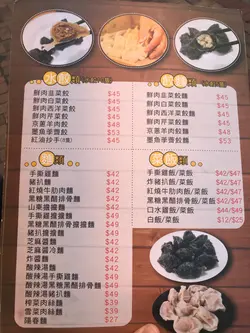 鮮肉韭菜餃 $45
鮮肉白菜餃 $45
鮮肉西洋菜餃 $45
鮮肉芹菜餃 $45
京蔥羊肉餃 $48
墨魚荸薺餃 $53
紅油抄手(8隻) $45
鮮肉韭菜餃麵 $45
鮮肉白菜餃麵 $45
鮮肉西洋菜餃麵 $45
鮮肉芹菜餃麵 $45
京蔥羊肉餃麵 $48
墨魚荸薺餃麵 $53
麵類
手撕雞麵 $42
豬扒麵 $42
紅燒牛肋肉麵 $42
黑糖黑醋排骨麵 $42
山東擔擔麵 $42
手撕雞擔擔麵 $42
黑糖黑醋排骨擔擔麵 $42
豬扒擔擔麵 $42
芝麻醬麵 $42
芝麻醬冷麵 $42
炸醬麵 $42
酸辣湯麵 $42
酸辣湯手撕雞麵 $42
酸辣湯黑糖黑醋排骨麵 $42
酸辣湯豬扒麵 $42
榨菜肉絲麵 $39
雪菜肉絲麵 $39
陽春麵 $27
手撕雞飯/菜飯 $42/$47
炸豬扒飯/菜飯 $42/$47
紅燒牛肋肉飯/菜飯 $42/$47
黑糖黑醋排骨飯/菜飯 $42/$47
口水雞飯/菜飯
白飯/菜飯